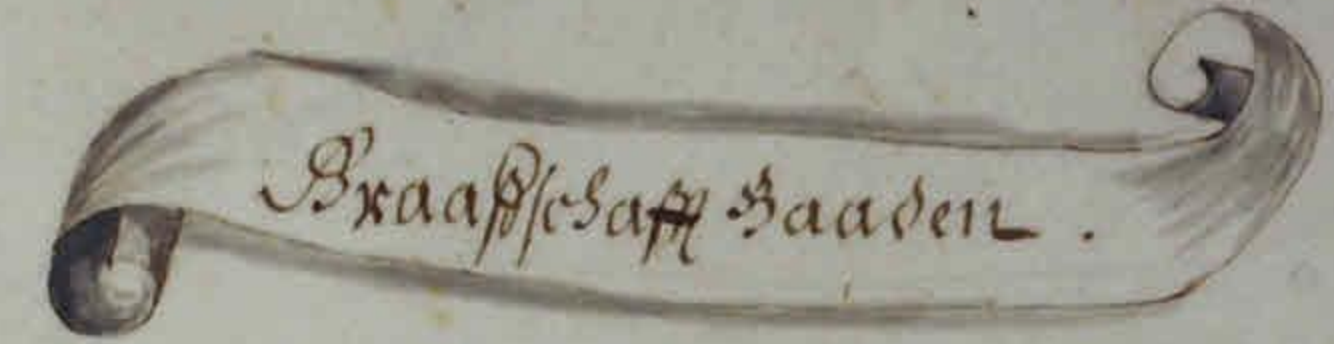 Graaffschafft Baaden.